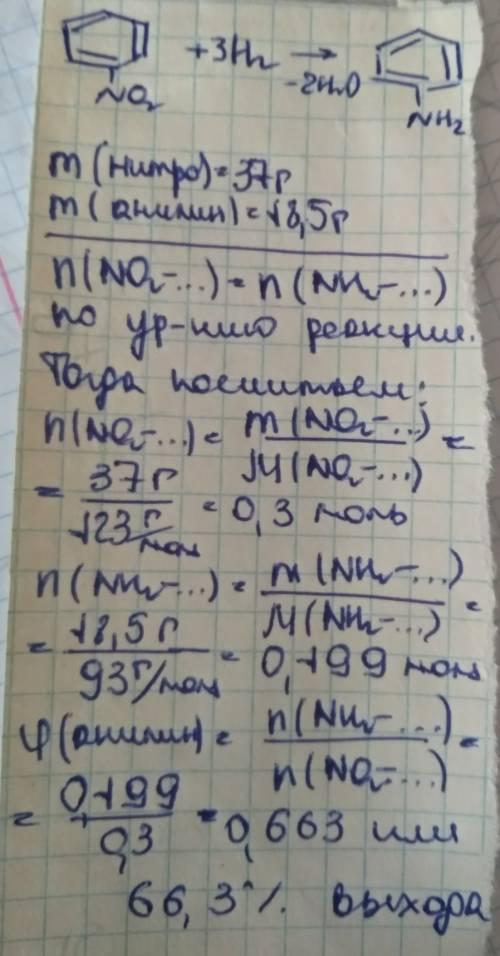 +3H₂ →
-2H₂O
NO₂
NH₂
m (нитро) = 37г
m (анилин) = 18,5г
n(NO₂-...) = n (NH₂-...)
по ур-нию реакции.
Тогда посчитаем:
n(NO₂-...) = m (NO₂-...) =
M (NO₂-...)
= 37г = 0,3 моль
123 г/мол
n (NH₂-...) = m (NH₂-...) =
M (NH₂-...)
= 18,5г = 0,199 мол
93г/мол
φ(анилин) = n (NH₂-...) =
n (NO₂-...)
= 0,199 = 0,663 или
0,3
66,3 % выхода